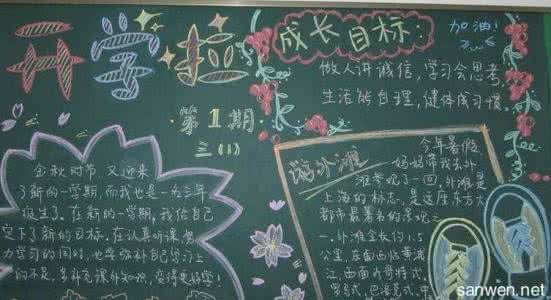 开学啦
第1期
三(1)
成长目标:
加油!
做人讲诚信,学习会思考,
生活能自理,健体成习惯。
金秋时节,又迎来
了新的一学期,而我也是一名三年
级生了。在新的一学期,我给自己
定下了新的目标。在认真听课,努
力学习的同时,也要弥补自己学习上
的不足,多补充课外知识,变得更好学!
游外滩
今年暑假,
妈妈带我去外
滩参观了一回,外滩是
上海的标志,是这座东方大
都市最著名的景观之
一。外滩全长约1.5
公里,东面临黄浦
江,西面为哥特式,
罗马式,巴洛克式,中
sanwen.net